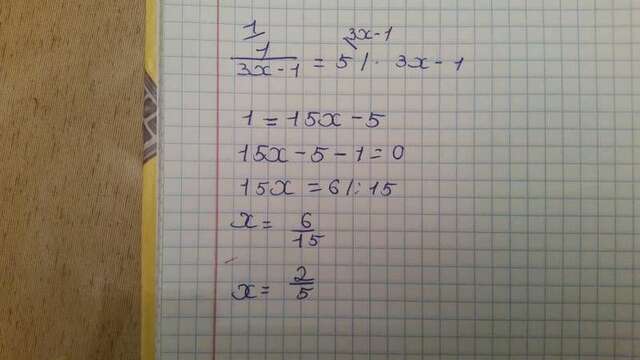 1 3x-1
1/(3x-1) = 5 /· 3x-1
1 = 15x-5
15x-5-1=0
15x = 6 /:15
x = 6/15
x = 2/5